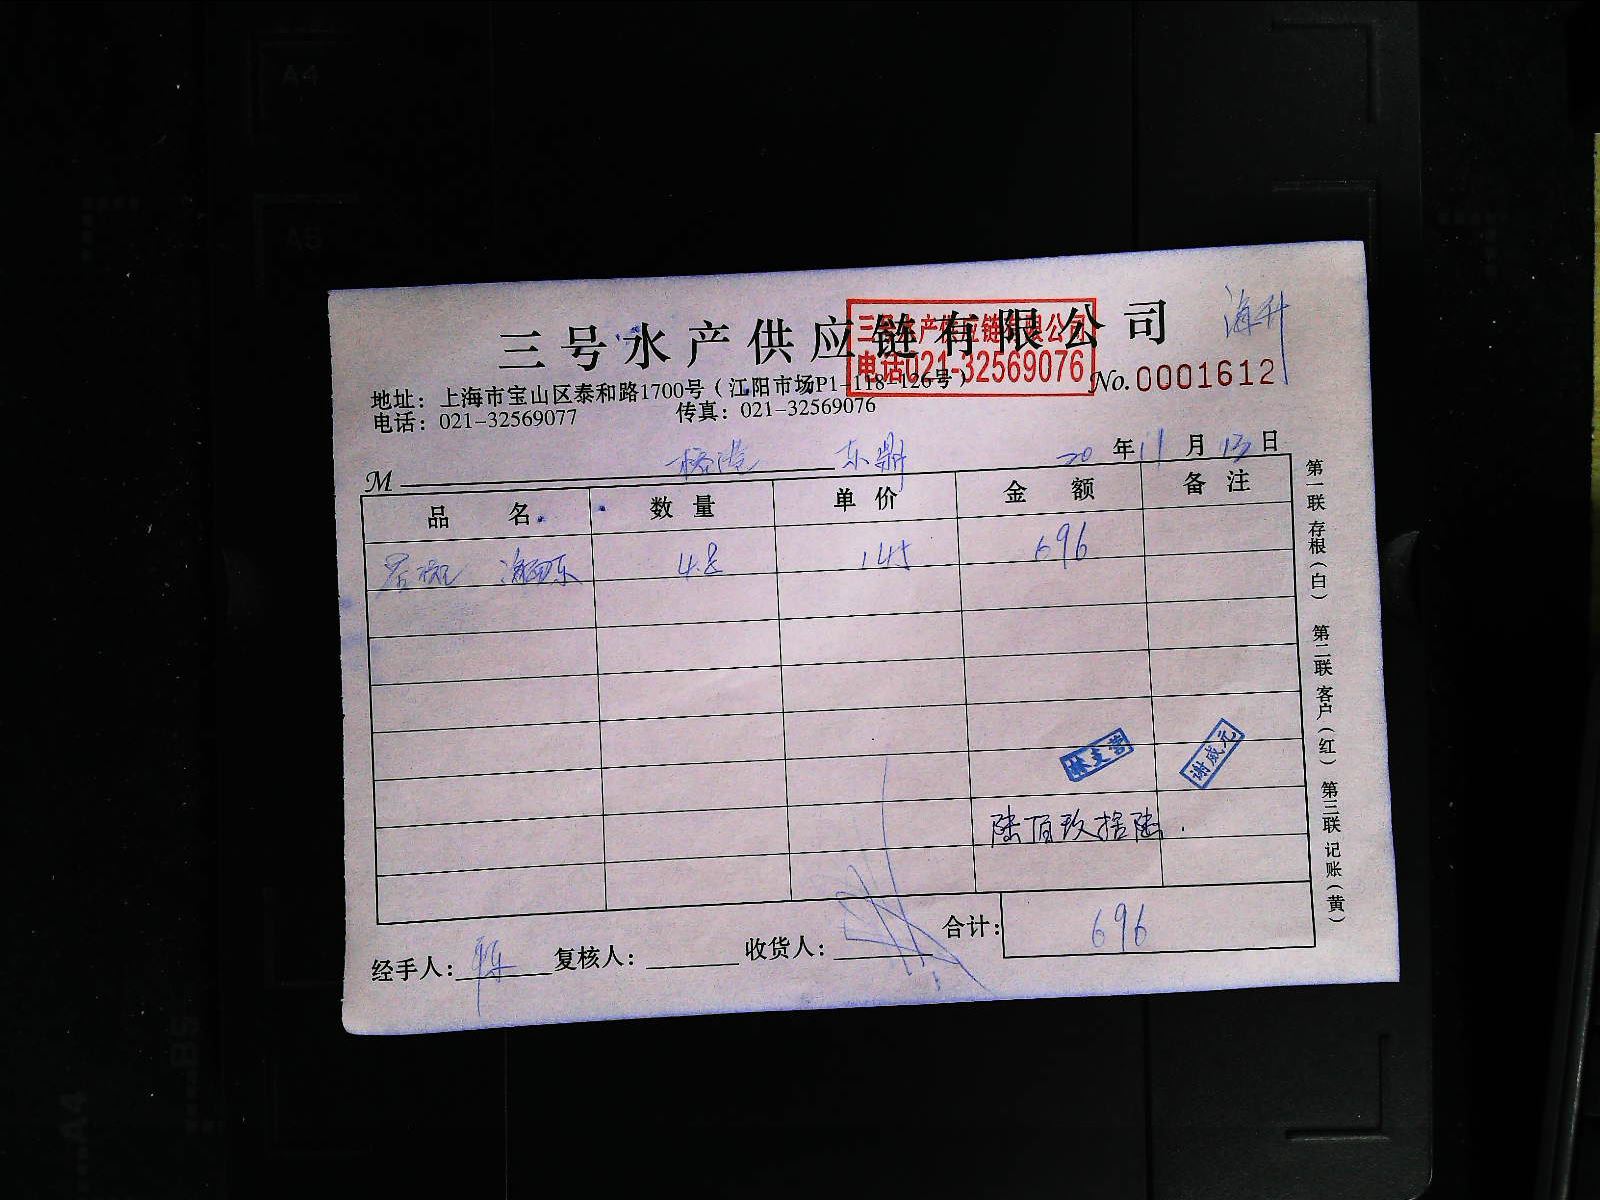 三号水产供应链有限公司
三号水产供应链有限公司
电话021-32569076
海升
地址：上海市宝山区泰和路1700号（江阳市场P1-118-126号）
No.0001612
电话：021-32569077 传真：021-32569076
M 东鼎 20年11月13日
品名 数量 单价 金额 备注
4.8 145 696
林支营
谢威元
陆佰玖拾陆.
合计：696
经手人： 复核人： 收货人：
第一联 存根（白） 第二联 客户（红） 第三联 记账（黄）
A4
A5
B5
A4